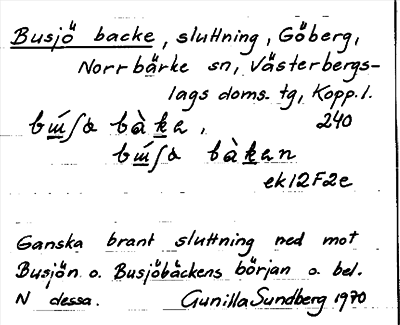 Busjö backe, sluttning, Göberg,
Norrbärke sn, Västerbergs-
lags doms. tg, Kopp. l.
bɯ́ʃɑ bàka, 240
bɯ́ʃɑ bàkan
ek12F2e
Ganska brant sluttning ned mot
Busjön o. Busjöbäckens början o. bel.
N dessa. Gunilla Sundberg 1970